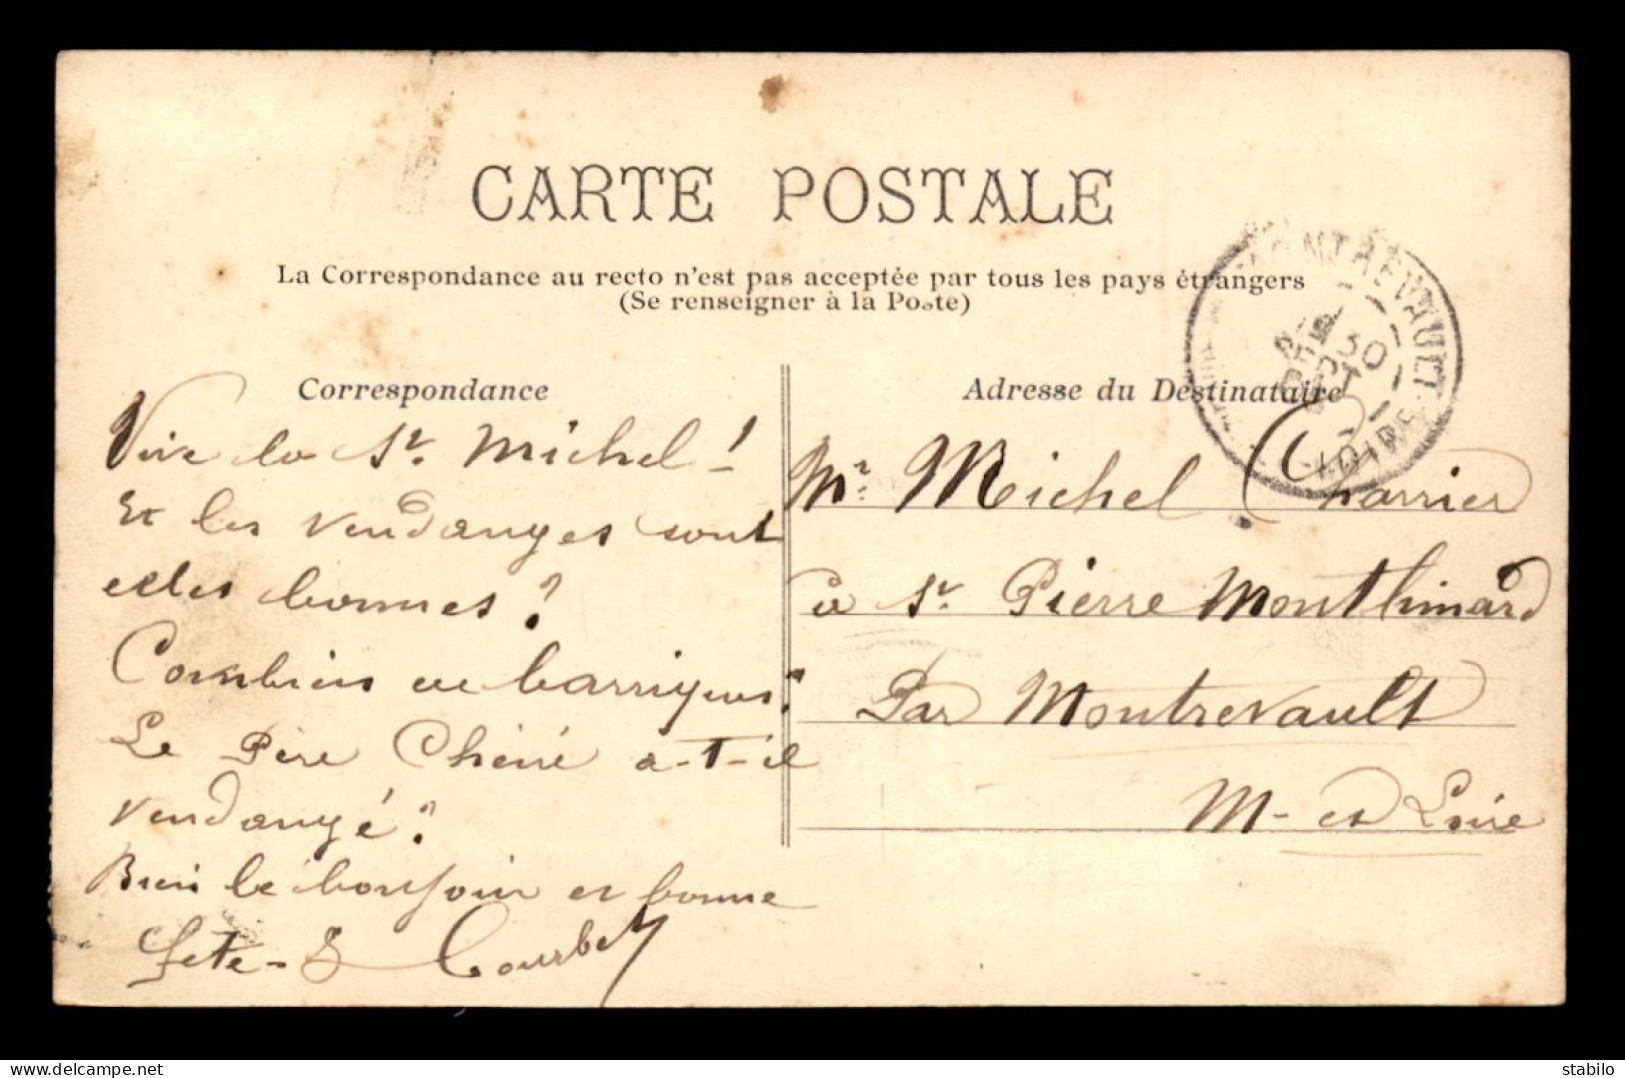 CARTE POSTALE
La Correspondance au recto n'est pas acceptée par tous les pays étrangers
(Se renseigner à la Poste)
Correspondance
Vive la St. Michel !
Et les vendanges sont
elles bonnes ?
Combien de barriques ?
Le Père Chéné a-t-il
vendangé ?
Bien le bonjour et bonne
fête - Courbet
Adresse du Destinataire
Mr. Michel Charrier
à St. Pierre Montlimard
Par Montrevault
M- et Loire
MONTREVAULT
30
SEPT
LOIRE
www.delcampe.net
stabilo